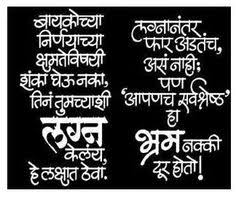 बायकोच्या
निर्णयाच्या
क्षमतेविषयी
शंका घेऊ नका,
तिनं तुमच्याशी
लग्न
केलंय,
हे लक्षात ठेवा.
लग्नानंतर
फार अडतंच,
असं नाही;
पण
'आपणच सर्वश्रेष्ठ'
हा
भ्रम नक्की
दूर होतो!